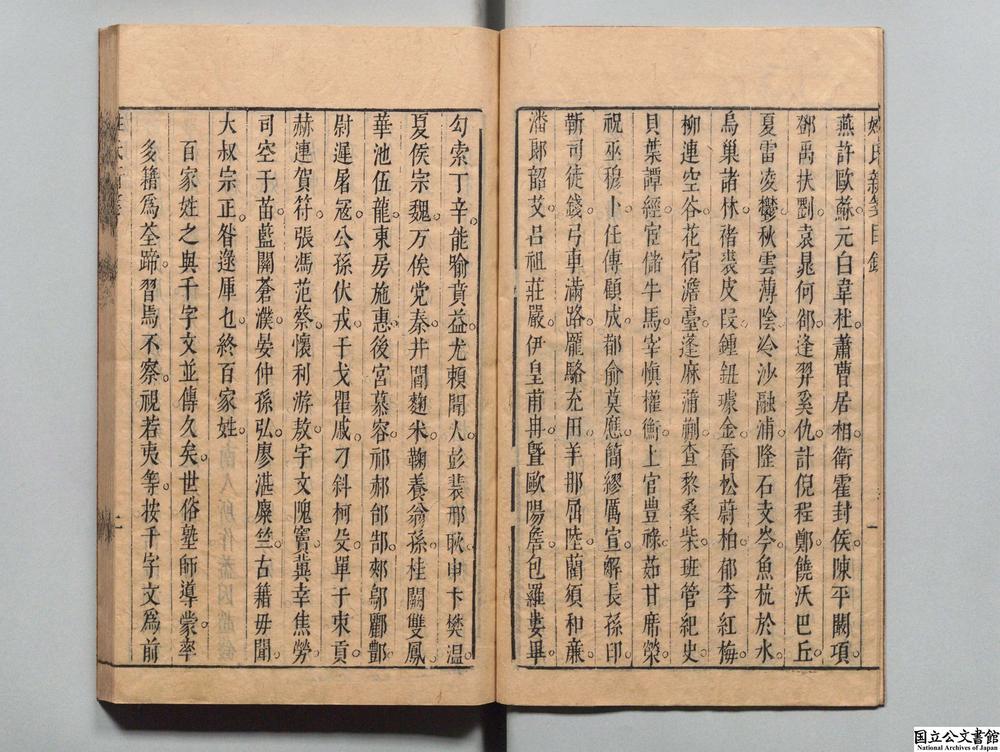 姓氏新箋目錄 一
燕許歐蘇。元白韋杜。蕭曹居相。衛霍封侯。陳平闕項。
鄧禹扶劉。袁晁何郤。逢羿奚仇。計倪程鄭。饒沃巴丘。
夏雷凌欝。秋雲薄陰。冷沙融浦。隆石支岑。魚杭於水。
烏巢諸林。褚裴皮段。鍾鈕璩金。喬松蔚柏。郁李紅梅。
柳連空谷。花宿澹臺。蓬麻蒲蒯。查黎桑柴。班管紀史。
貝葉譚經。宦儲牛馬。宰慎權衡。上官豐祿。茹甘席榮。
祝巫穆卜。任傳顧成。都俞莫應。簡繆厲宣。解長孫印。
靳司徒錢。弓車滿路。龐駱充田。羊那屈陸。藺須和廉。
潘郎韶艾。呂祖莊嚴。伊皇甫冉。暨歐陽詹。包羅婁畢。
勾索丁辛。能喻賁益。尤賴聞人。彭裴邢耿。申卞樊溫。
夏侯宗魏。万俟党秦。井閻麴米。鞠養翁孫。桂關雙鳳。
華池伍龍。東房施惠。後宮慕容。祁郝郃郜。郟鄔酈酆。
尉遲屠寇。公孫伏戎。干戈瞿戚。刁斜柯殳。單于束貢。
赫連賀符。張馮范蔡。懷利游敖。宇文隗竇。冀幸焦勞。
司空于苗。藍關蒼濮。晏仲孫弘。廖湛麋竺。古籍毋聞。
大叔宗正。昝逯厙乜。終百家姓。
百家姓之與千字文並傳久矣。世俗塾師導蒙。率
多籍為筌蹄。習焉不察。視若夷等。按千字文為前
国立公文書館
National Archives of Japan